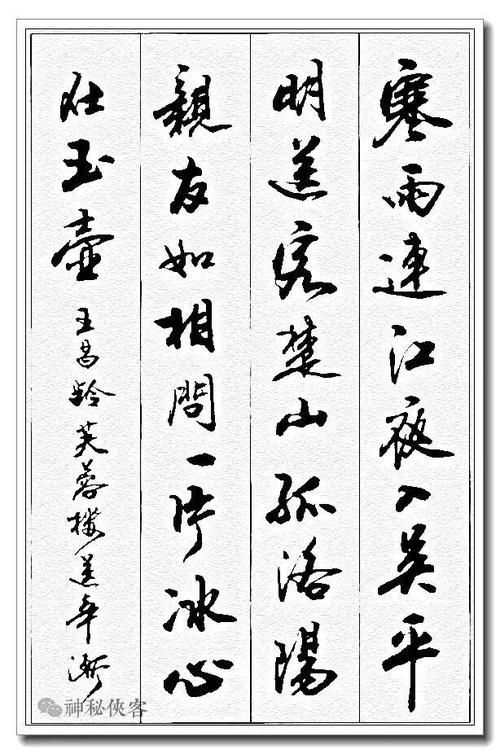 寒雨連江夜入吴平
明送客楚山孤洛陽
親友如相問一片冰心
在玉壺
王昌齡芙蓉樓送辛漸
神秘俠客